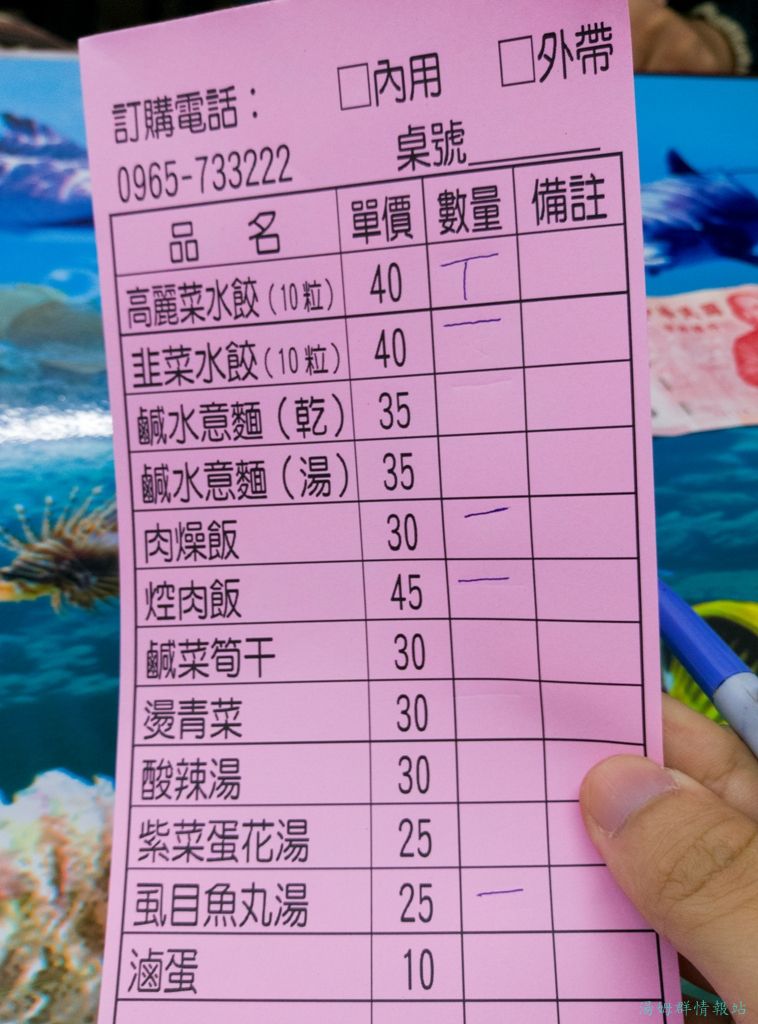 訂購電話： □內用 □外帶
0965-733222 桌號______
品 名 單價 數量 備註
高麗菜水餃(10粒) 40 丅
韭菜水餃(10粒) 40 一
鹹水意麵(乾) 35
鹹水意麵(湯) 35
肉燥飯 30 一
焢肉飯 45 一
鹹菜筍干 30
燙青菜 30
酸辣湯 30
紫菜蛋花湯 25
虱目魚丸湯 25 一
滷蛋 10
湯姆群情報站